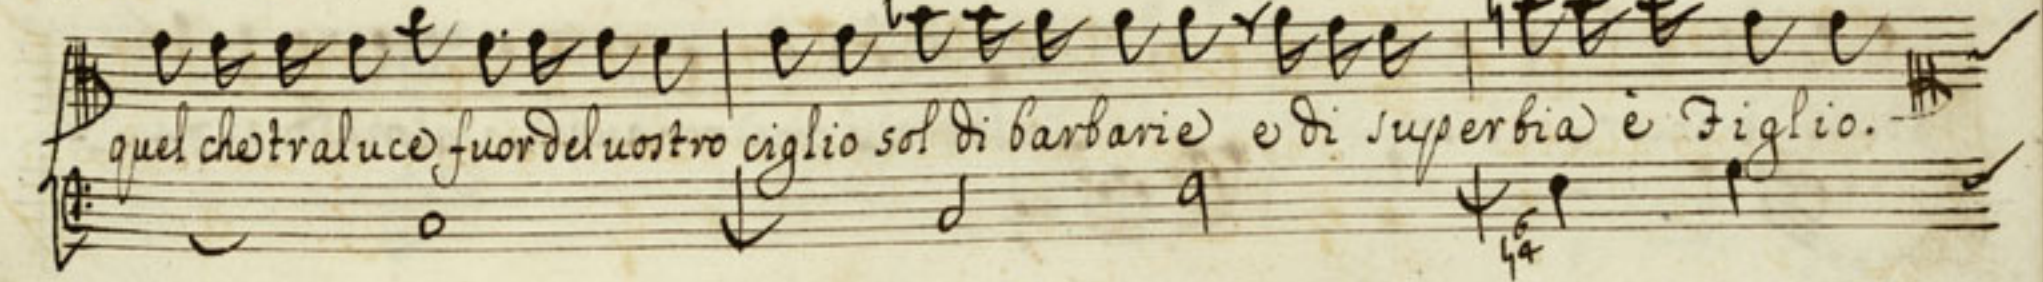 quel che traluce fuor del uostro ciglio sol di barbarie e di superbia è Figlio.
6
♮4